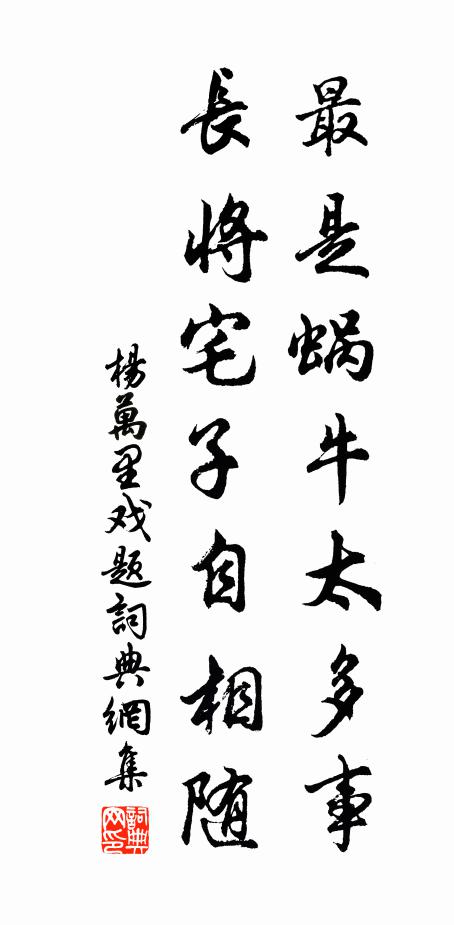 最是蝸牛太多事
長將宅子自相随
楊萬里戏题詞典網集
詞典网印